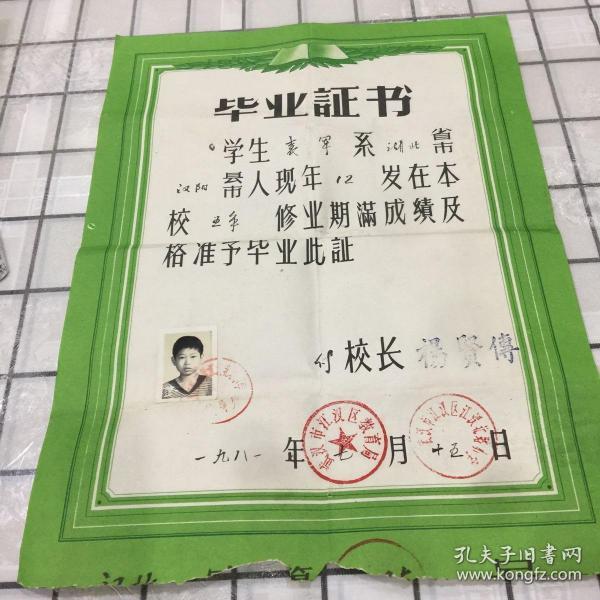 毕业証书
学生 袁军 系 湖北 省市
汉阳 县市 人现年 12 岁在本
校 五年 修业期满成績及
格准予毕业此証
付 校长 楊賢傳
一九八一 年 七 月 十五 日
武汉市江汉区教育局
孔夫子旧书网
www.kongfz.com